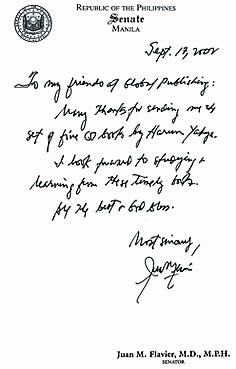 REPUBLIC OF THE PHILIPPINES
Senate
MANILA
Sept. 13, 2002
To my friends of Global Publishing:
Many thanks for sending me the
set of five CD books by Harun Yahya.
I look forward to studying &
learning from these timely books.
All the best & God bless.
Most sincerely,
Juan M. Flavier, M.D., M.P.H.
SENATOR